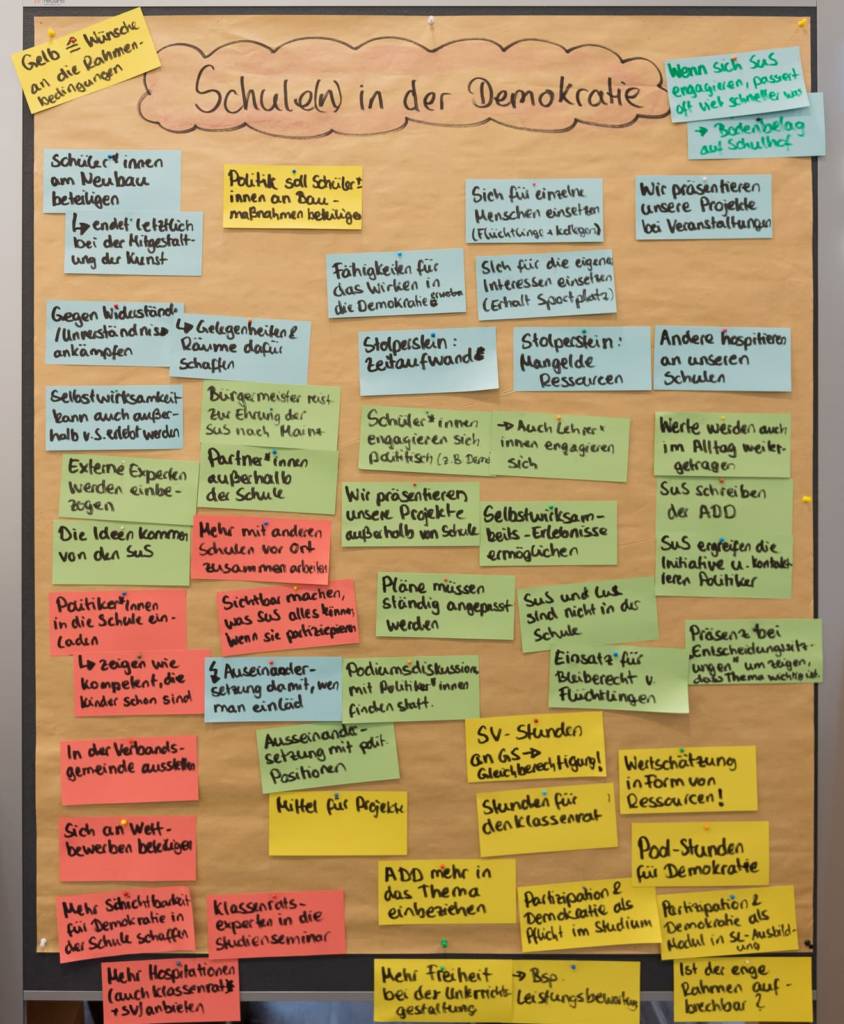 Gelb ≙ Wünsche
an die Rahmen-
bedingungen
Schule(n) in der Demokratie
Wenn sich SuS
engagieren, passiert
oft viel schneller was
→ Bodenbelag
auf Schulhof
Schüler*innen
am Neubau
beteiligen
↳ endet letztlich
bei der Mitgestalt-
ung der Kunst
Politik soll Schüler*
innen an Bau-
maßnahmen beteiligen
Sich für einzelne
Menschen einsetzen
(Flüchtlinge + kollegen)
Wir präsentieren
unsere Projekte
bei Veranstaltungen
Fähigkeiten für
das Wirken in
die Demokratie erwerben
Sich für die eigene
Interessen einsetzen
(Erhalt Sportplatz)
Gegen Widerstände
/Unverständnis
ankämpfen
↳ Gelegenheiten &
Räume dafür
schaffen
Stolperstein:
Zeitaufwand
Stolperstein:
Mangelde
Ressourcen
Andere hospitieren
an unseren
Schulen
Selbstwirksamkeit
kann auch außer-
halb v.S. erlebt werden
Bürgermeister reist
zur Ehrung der
SuS nach Mainz
Schüler*innen
engagieren sich
politisch (z.B Demo
→ Auch Lehrer*
innen engagieren
sich
Werte werden auch
im Alltag weiter-
getragen
Externe Experten
werden einbe-
zogen
Partner*innen
außerhalb
der Schule
Wir präsentieren
unsere Projekte
außerhalb von Schule
Selbstwirksam-
keits-Erlebnisse
ermöglichen
SuS schreiben
der ADD
Die Ideen kommen
von den SuS
Mehr mit anderen
Schulen vor Ort
zusammen arbeiten
SuS ergreifen die
Initiative u. kontak-
tieren Politiker
Politiker*innen
in die Schule ein-
laden
Sichtbar machen,
was SuS alles können,
wenn sie partizipieren
Pläne müssen
ständig angepasst
werden
SuS und LuL
sind nicht in der
Schule
Präsenz bei
„Entscheidungssitz-
ungen" um zeigen,
dass Thema wichtig ist
↳ zeigen wie
kompetent, die
kinder schon sind
↯ Auseinander-
setzung damit, wen
man einläd
Podiumsdiskussion
mit Politiker*innen
finden statt.
Einsatz für
Bleiberecht v.
Flüchtlingen
In der Verbands-
gemeinde ausstellen
Ausseinander-
setzung mit polit.
Positionen
SV-Stunden
an GS →
Gleichberechtigung!
Wertschätzung
in Form von
Ressourcen!
Mittel für Projekte
Stunden für
den Klassenrat
Sich an Wett-
bewerben beteiligen
Pool-Stunden
für Demokratie
ADD mehr in
das Thema
einbeziehen
Mehr Sichtbarkeit
für Demokratie in
der Schule schaffen
Klassenrats-
experten in die
Studienseminar
Partizipation &
Demokratie als
Pflicht im Studium
Partizipation &
Demokratie als
Modul in SL-Ausbild-
ung
Mehr Hospitationen
(auch Klassenrat
+ SV) anbieten
Mehr Freiheit
bei der Unterrichts-
gestaltung
→ Bsp.
Leistungsbewertung
Ist der enge
Rahmen auf-
brechbar?